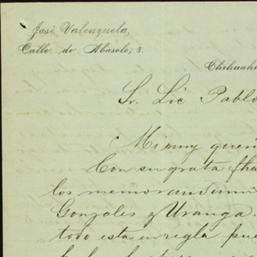 José Valenzuela,
Calle de Abasolo, 3.
Chihuah
Sr. Lic Pablo
Mi muy
Con su grata
los memorandum
Gonzales y Uranga.
todo esta en regla pue